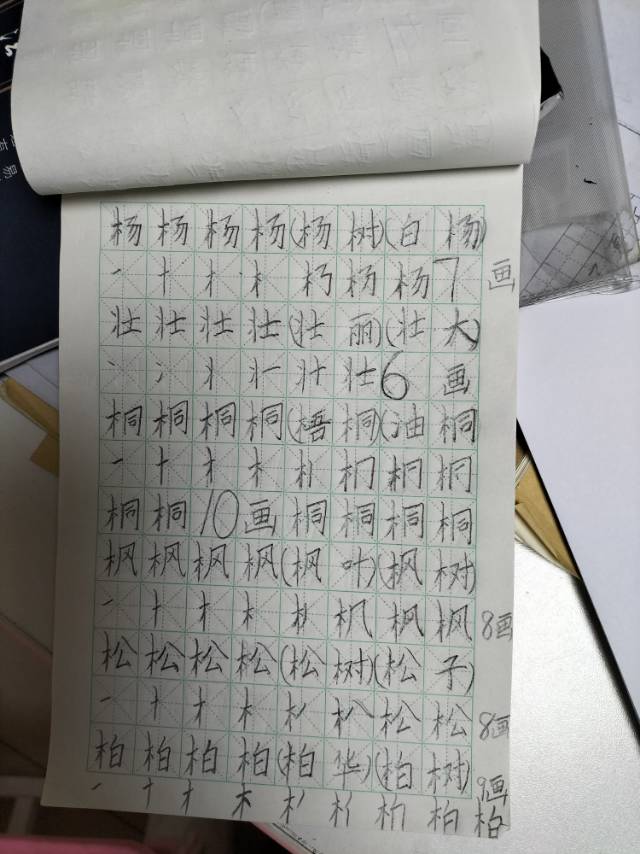 杨杨杨杨(杨树)(白杨)
一十才木杇杨杨7画
壮壮壮壮(壮丽)(壮大)
丶冫丬壮6画
桐桐桐桐(梧桐)(油桐)
一十才木桐
桐桐10画桐桐桐桐
枫枫枫枫(枫叶)(枫树)
一十才木机枫枫8画
松松松松(松树)(松子)
一十才木松松8画
柏柏柏柏(柏华)(柏树)
一十才木柏柏9画